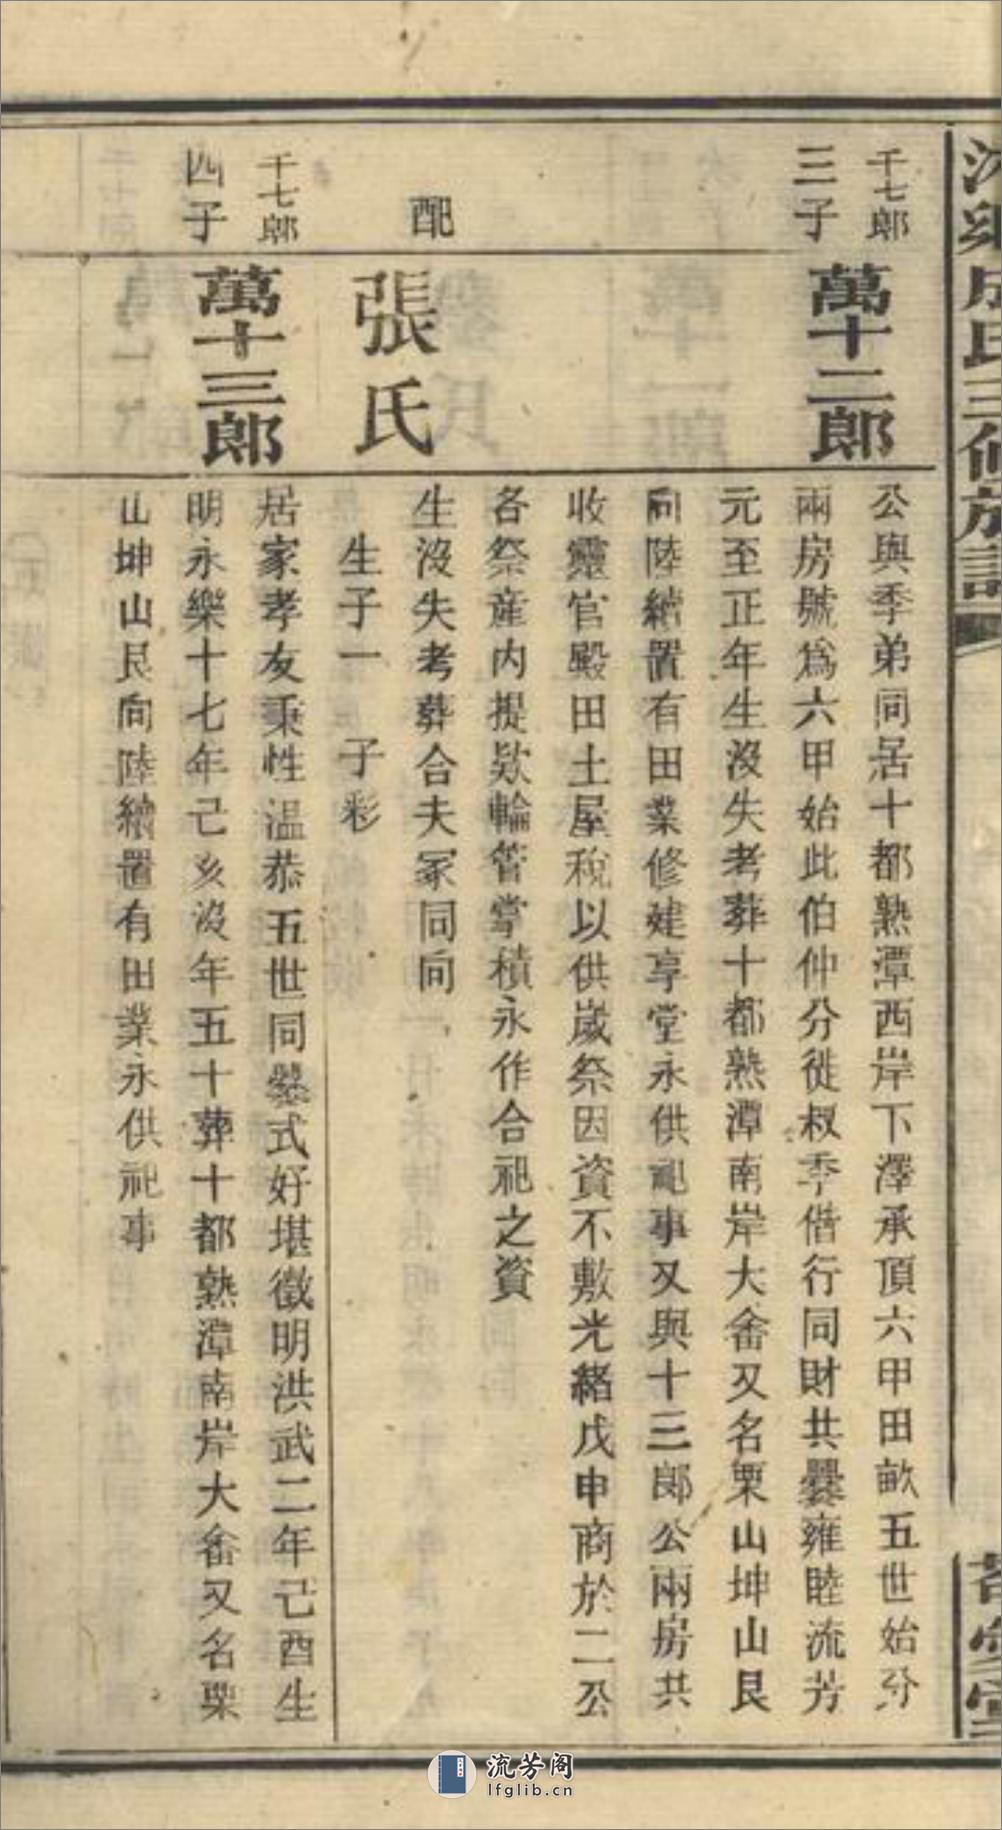 氏三修族譜
千七郎
三子
萬十二郎
公與季弟同居十都熟潭西岸下澤承頂六甲田畝五世始分
兩房號爲六甲始此伯仲分徙叔季偕行同財共爨雍睦流芳
元至正年生沒失考葬十都熟潭南岸大畲又名栗山坤山艮
向陸續置有田業修建享堂永供祀事又與十三郎公兩房共
收靈官殿田土屋稅以供歲祭因資不敷光緒戊申商於二公
各祭產內提欵輪管掌積永作合祀之資
配
張氏
生沒失考葬合夫冢同向
生子一 子彩
千七郎
四子
萬十三郎
居家孝友秉性温恭五世同爨式好堪徵明洪武二年己酉生
明永樂十七年己亥沒年五十葬十都熟潭南岸大畲又名栗
山坤山艮向陸續置有田業永供祀事
流芳阁
lfglib.cn